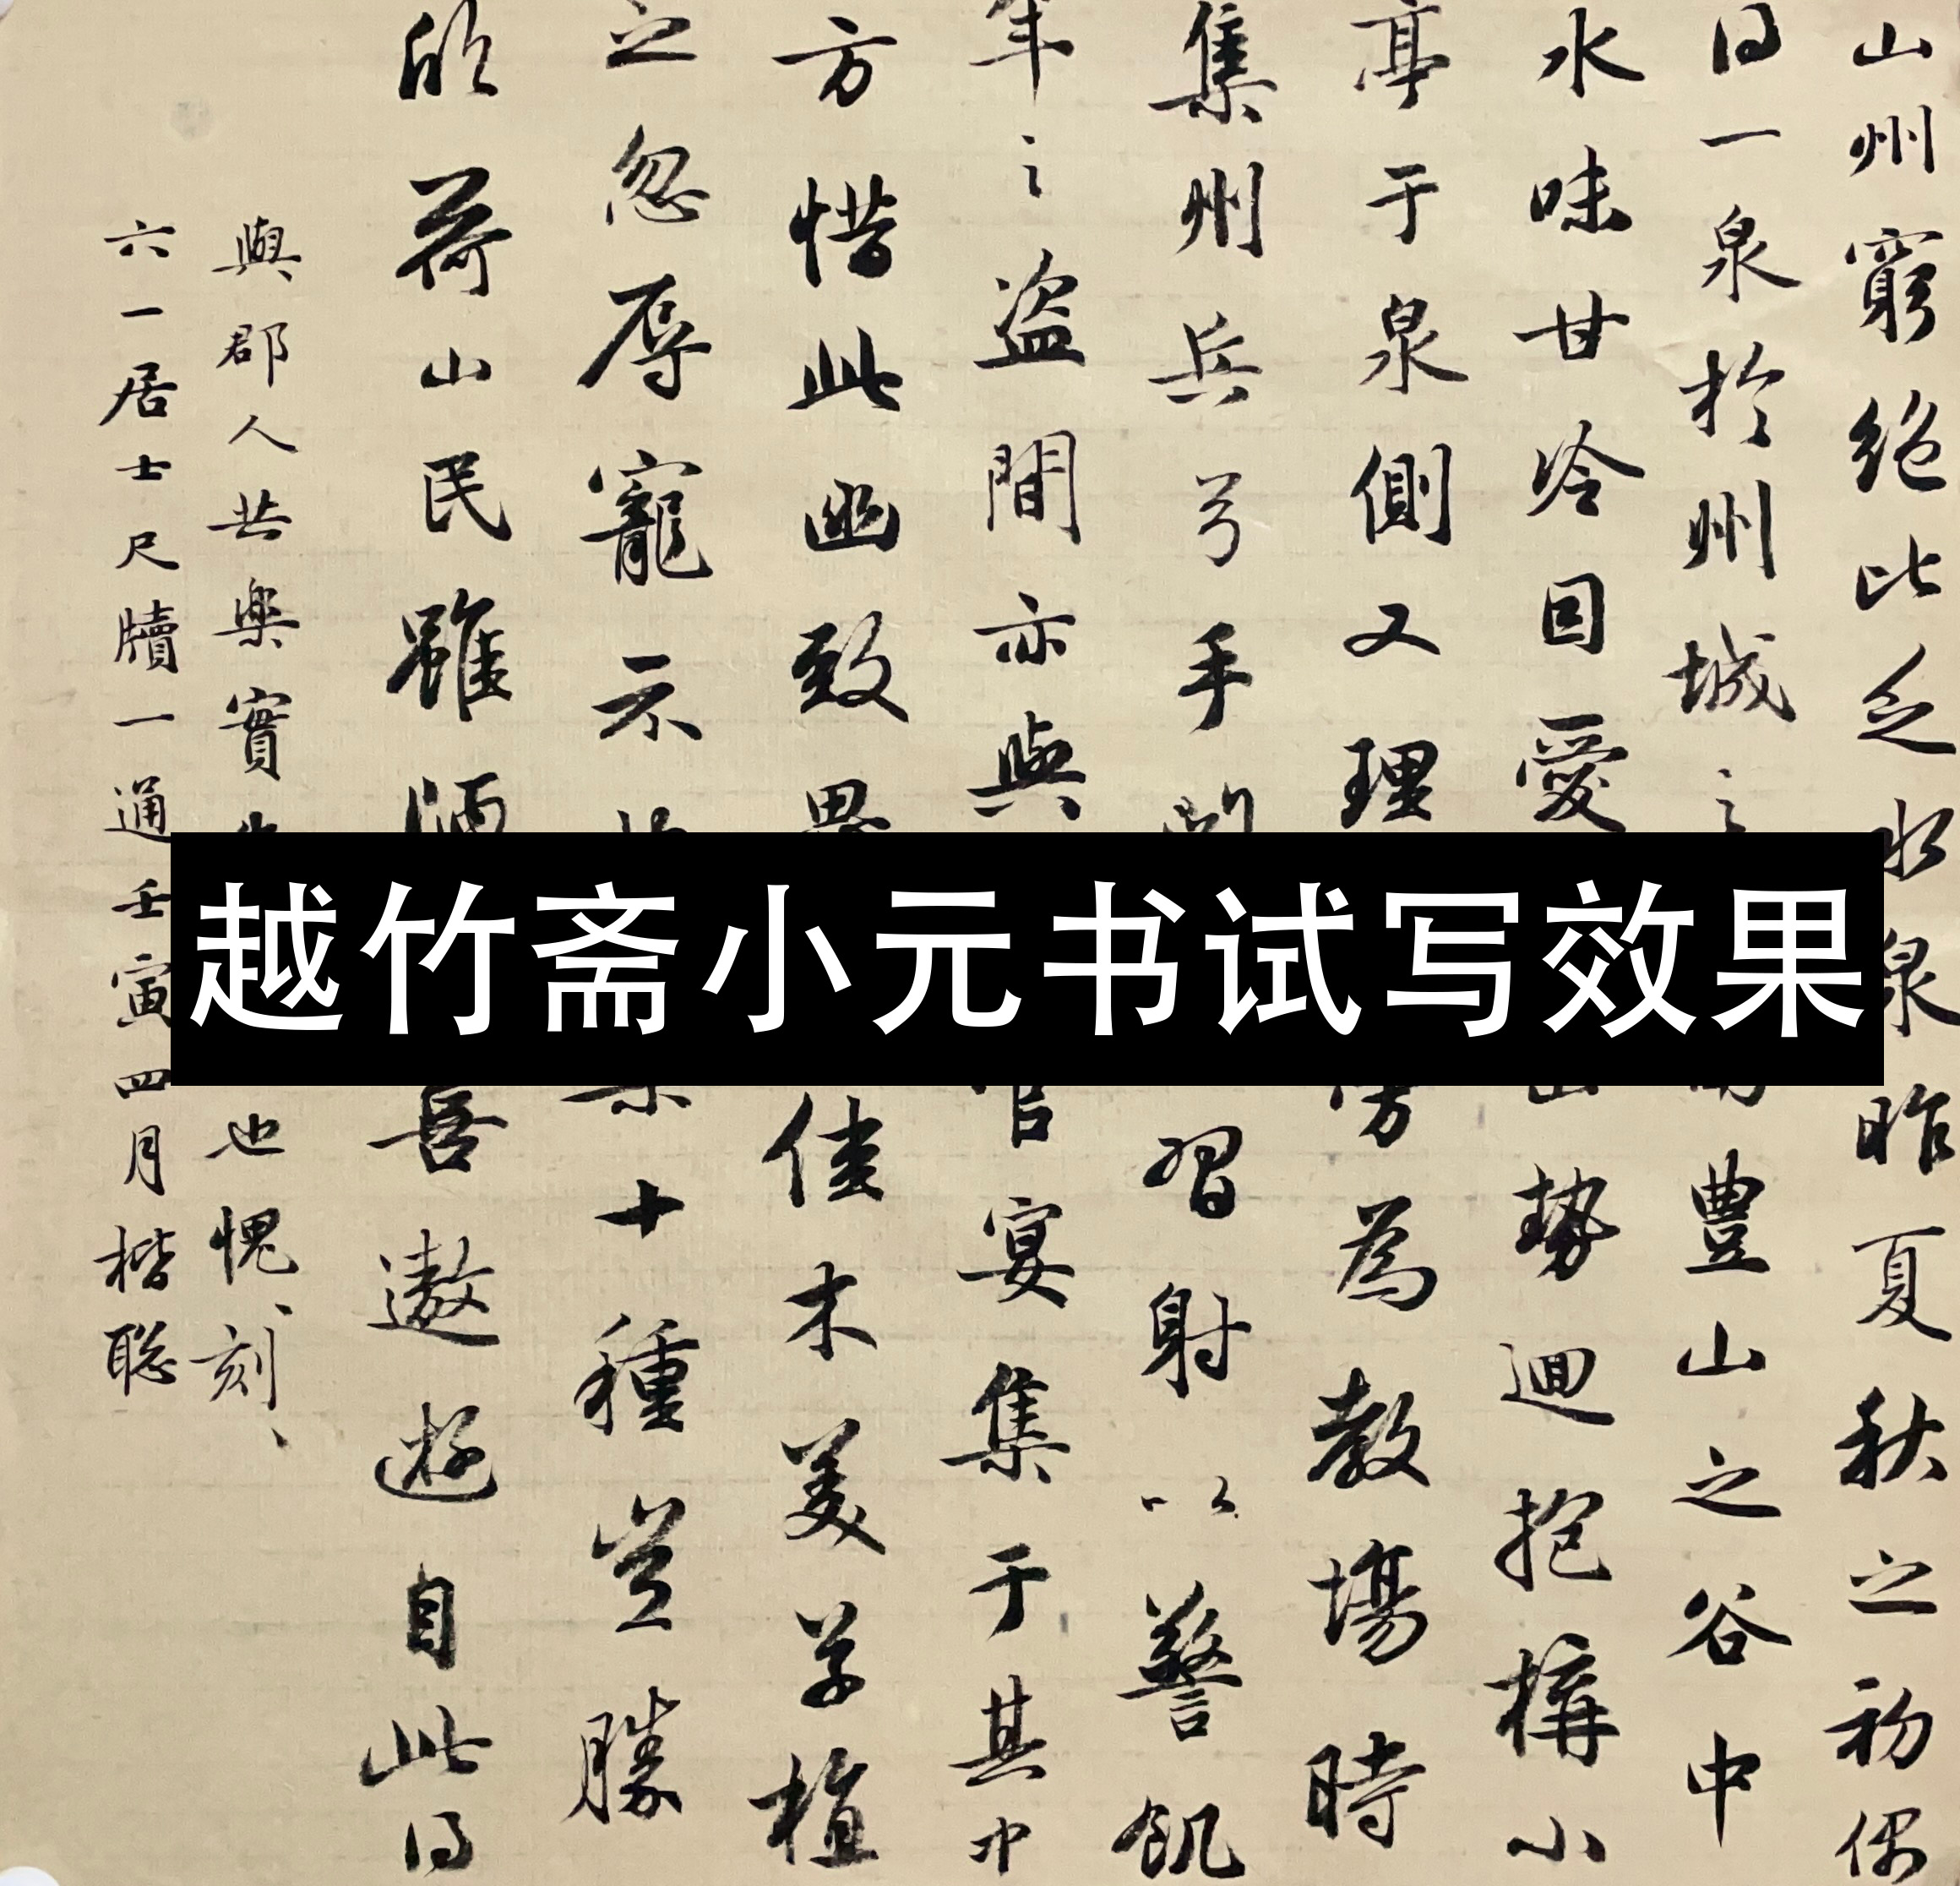 山州窮絕比乏水泉昨夏秋之初偶
得一泉於州城之南豐山之谷中
水味甘冷因愛山勢迴抱構小
亭于泉側又理傍為教場時
集州兵弓手閱習射以警飢
年之盜間亦與官宴集于其中
方惜此幽致思佳木美草植
之忽辱寵示十種豈勝
欣荷山民雖陋喜遨遊自此得
與郡人共樂實也愧、刻、
六一居士尺牘一通壬寅四月楷聡
越竹斋小元书试写效果